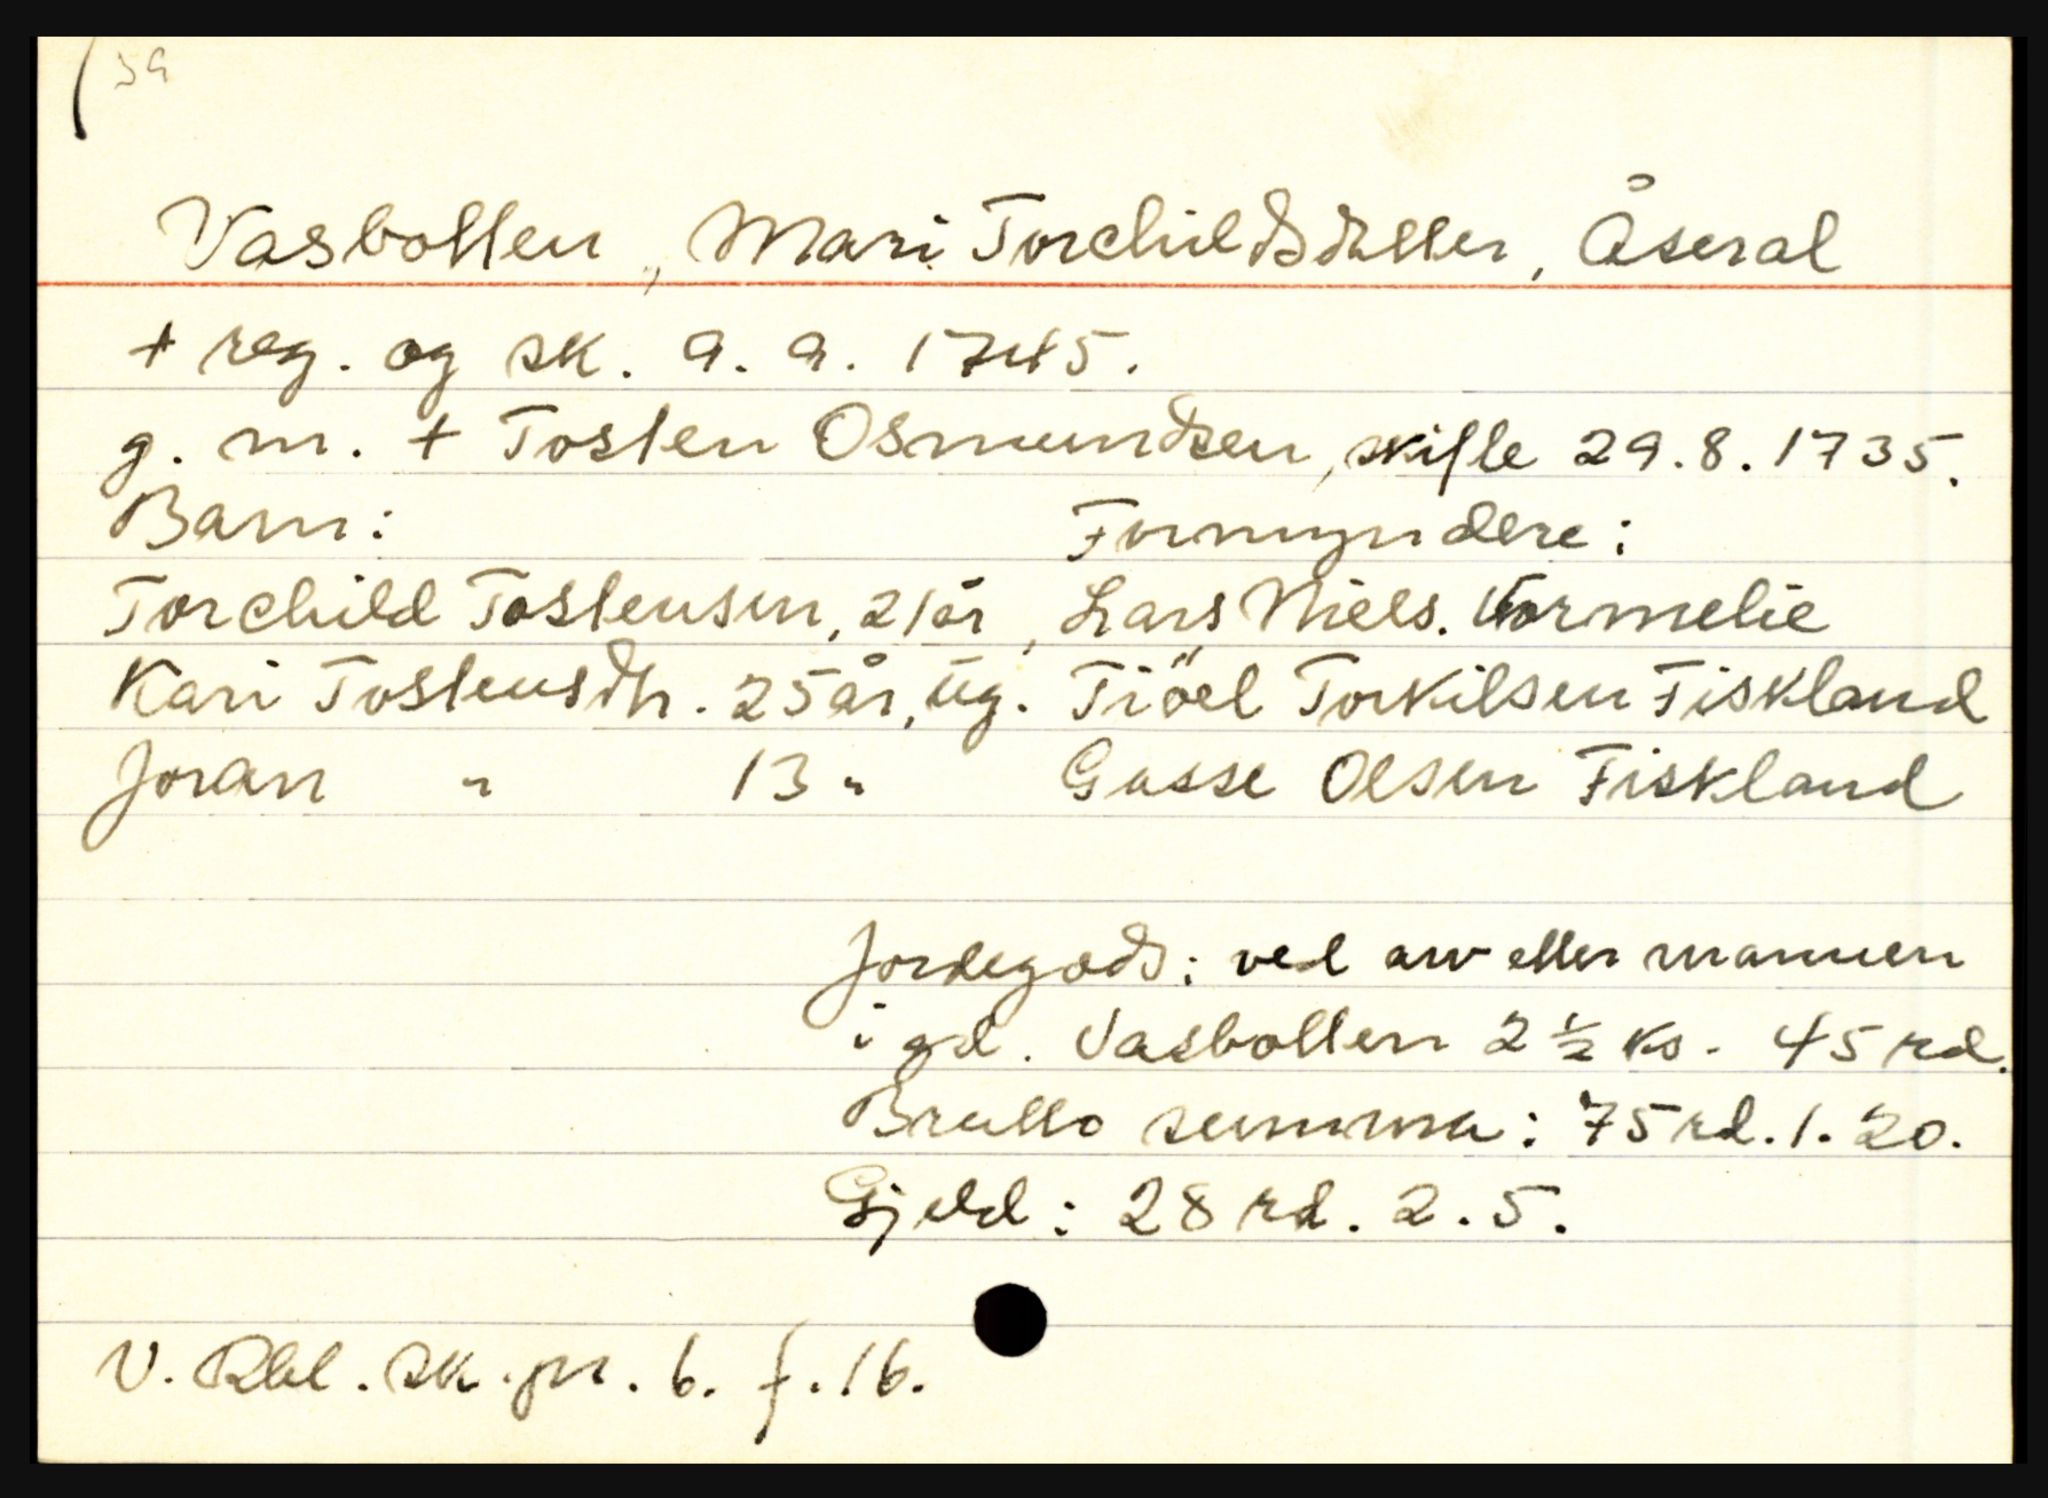 Vasbotten, Mari Torchildsdatter, Åseral
+ reg. og sk. 9. 9. 1745.
g. m. + Tosten Osmundsen, skifte 29. 8. 1735.
Barn: Formyndere:
Torchild Tostensen, 21 år, Lars Niels. Kormelie
Kari Tostensdtr. 25 år, ug. Tiöel Torkilsen Fiskland
Joran " 13 " Gusse Olsen Fiskland
Jordegods: ved arv etter mannen
i gd. Vasbotten 2 ½ ks. 45 rd.
Brutto summa: 75 rd. 1. 20.
Gjeld: 28 rd. 2. 5.
V. Rbl. sk. pr. 6. f. 16.